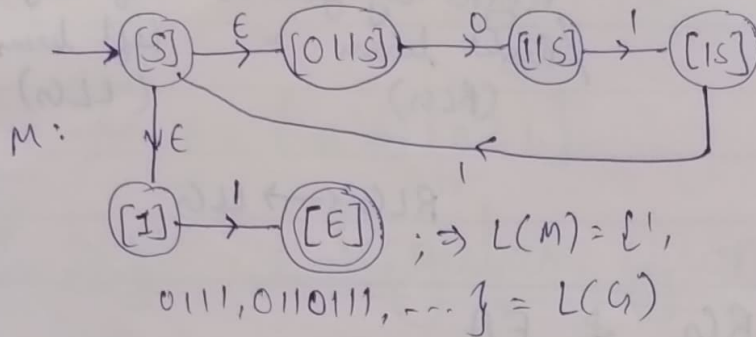 [S] ε [011S] 0 [11S] 1 [1S]
M: ε 1
[1] 1 [ε] ; ⇒ L(M) = {1,
0111, 0110111, ---- } = L(G)